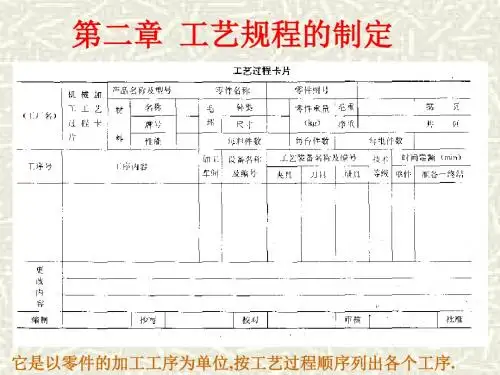 第二章 工艺规程的制定
工艺过程卡片
（工厂名） 机械加工工艺过程卡片 产品名称及型号 零件名称 零件图号
材料 名称 毛坯 种类 零件重量(kg) 毛重 第 页
牌号 尺寸 净重 共 页
性能 每料件数 每台件数 每批件数
工序号 工序内容 加工车间 设备名称及编号 工艺装备名称及编号 技术等级 时间定额 (min)
夹具 刀具 量具 单件 准备—终结
更改内容
编制 抄写 校对 审核 批准
它是以零件的加工工序为单位,按工艺过程顺序列出各个工序.